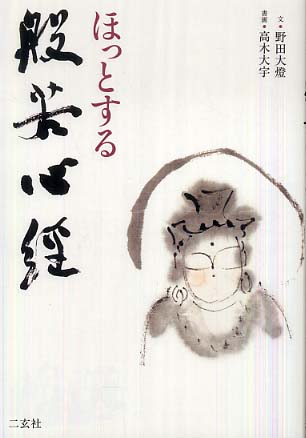 ほっとする
般若心経
文・野田大燈
書画・高木大宇
二玄社